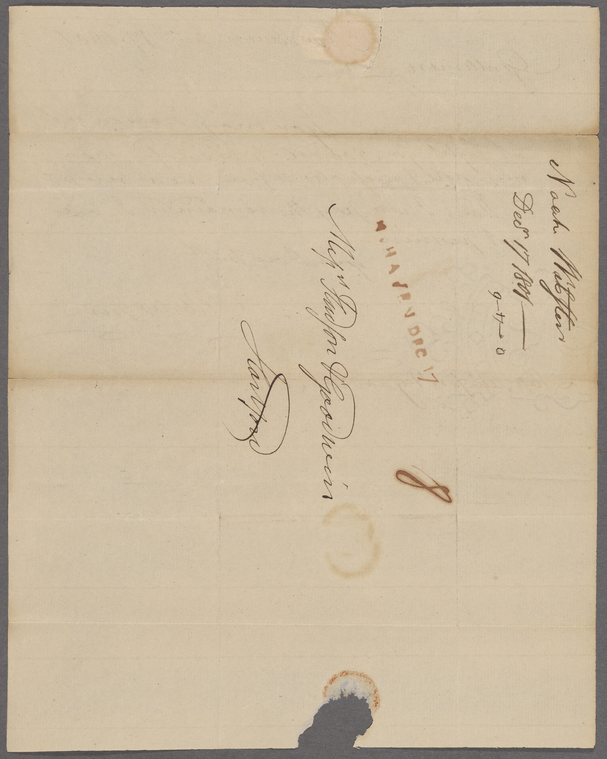 Noah Webster
Decr 17 1801
N. HAVEN DEC 17
8
Messrs Hudson & Goodwin
Hartford